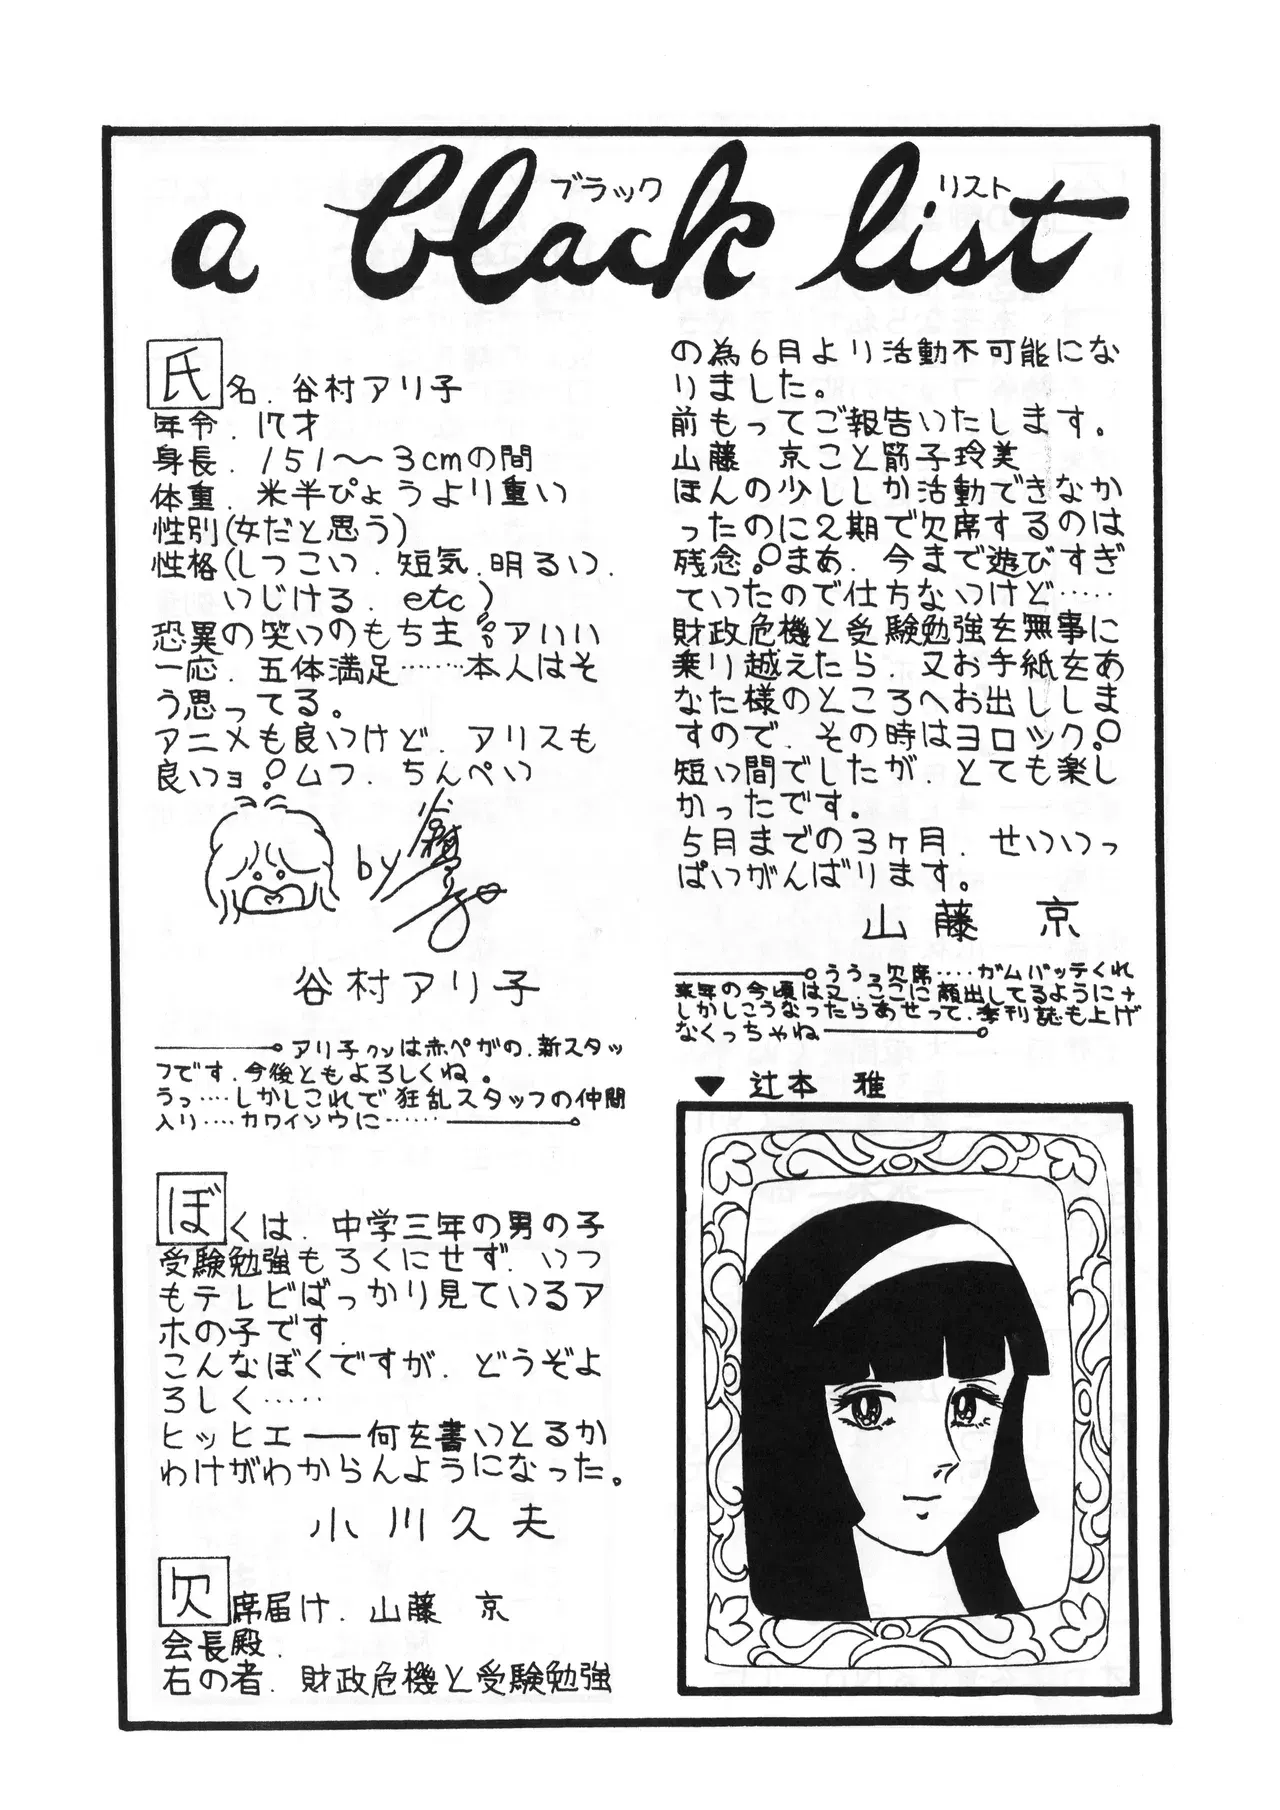 a black list
ブラック リスト
氏名. 谷村アリ子
年令. 17才
身長. 151～3cmの間
体重. 米半ぴょうより重い
性別(女だと思う)
性格(しつこい. 短気. 明るい.
いじける. etc)
恐異の笑いのもち主。アハハ
一応. 五体満足……本人はそ
う思ってる。
アニメも良いけど. アリスも
良いョ！ムフ. ちんぺい
by
谷村アリ子
アリ子クンは赤ペガの. 新スタッ
フです. 今後ともよろしくね。
うっ…. しかしこれで狂乱スタッフの仲間
入り…. カワイソウに……
ぼくは. 中学三年の男の子
受験勉強もろくにせず. いつ
もテレビばっかり見ているア
ホの子です.
こんなぼくですが. どうぞよ
ろしく……
ヒッヒエ――何を書いとるか
わけがわからんようになった。
小川久夫
欠席届け. 山藤 京
会長殿.
右の者. 財政危機と受験勉強
の為6月より活動不可能にな
りました。
前もってご報告いたします。
山藤 京こと筋子玲美
ほんの少ししか活動できなか
ったのに2期で欠席するのは
残念。まあ. 今まで遊びすぎ
ていたので仕方ないけど……
財政危機と受験勉強を無事に
乗り越えたら. 又お手紙をあ
なた様のところへお出ししま
すので. その時はヨロック。
短い間でしたが. とても楽し
かったです。
5月までの3ヶ月. せいいっ
ぱいがんばります。
山藤 京
ううっ欠席…. ガムバッテくれ
来年の今頃は又. ここに顔出してるように+
しかしこうなったらあせって. 季刊誌も上げ
なくっちゃね
▼ 辻本 雅